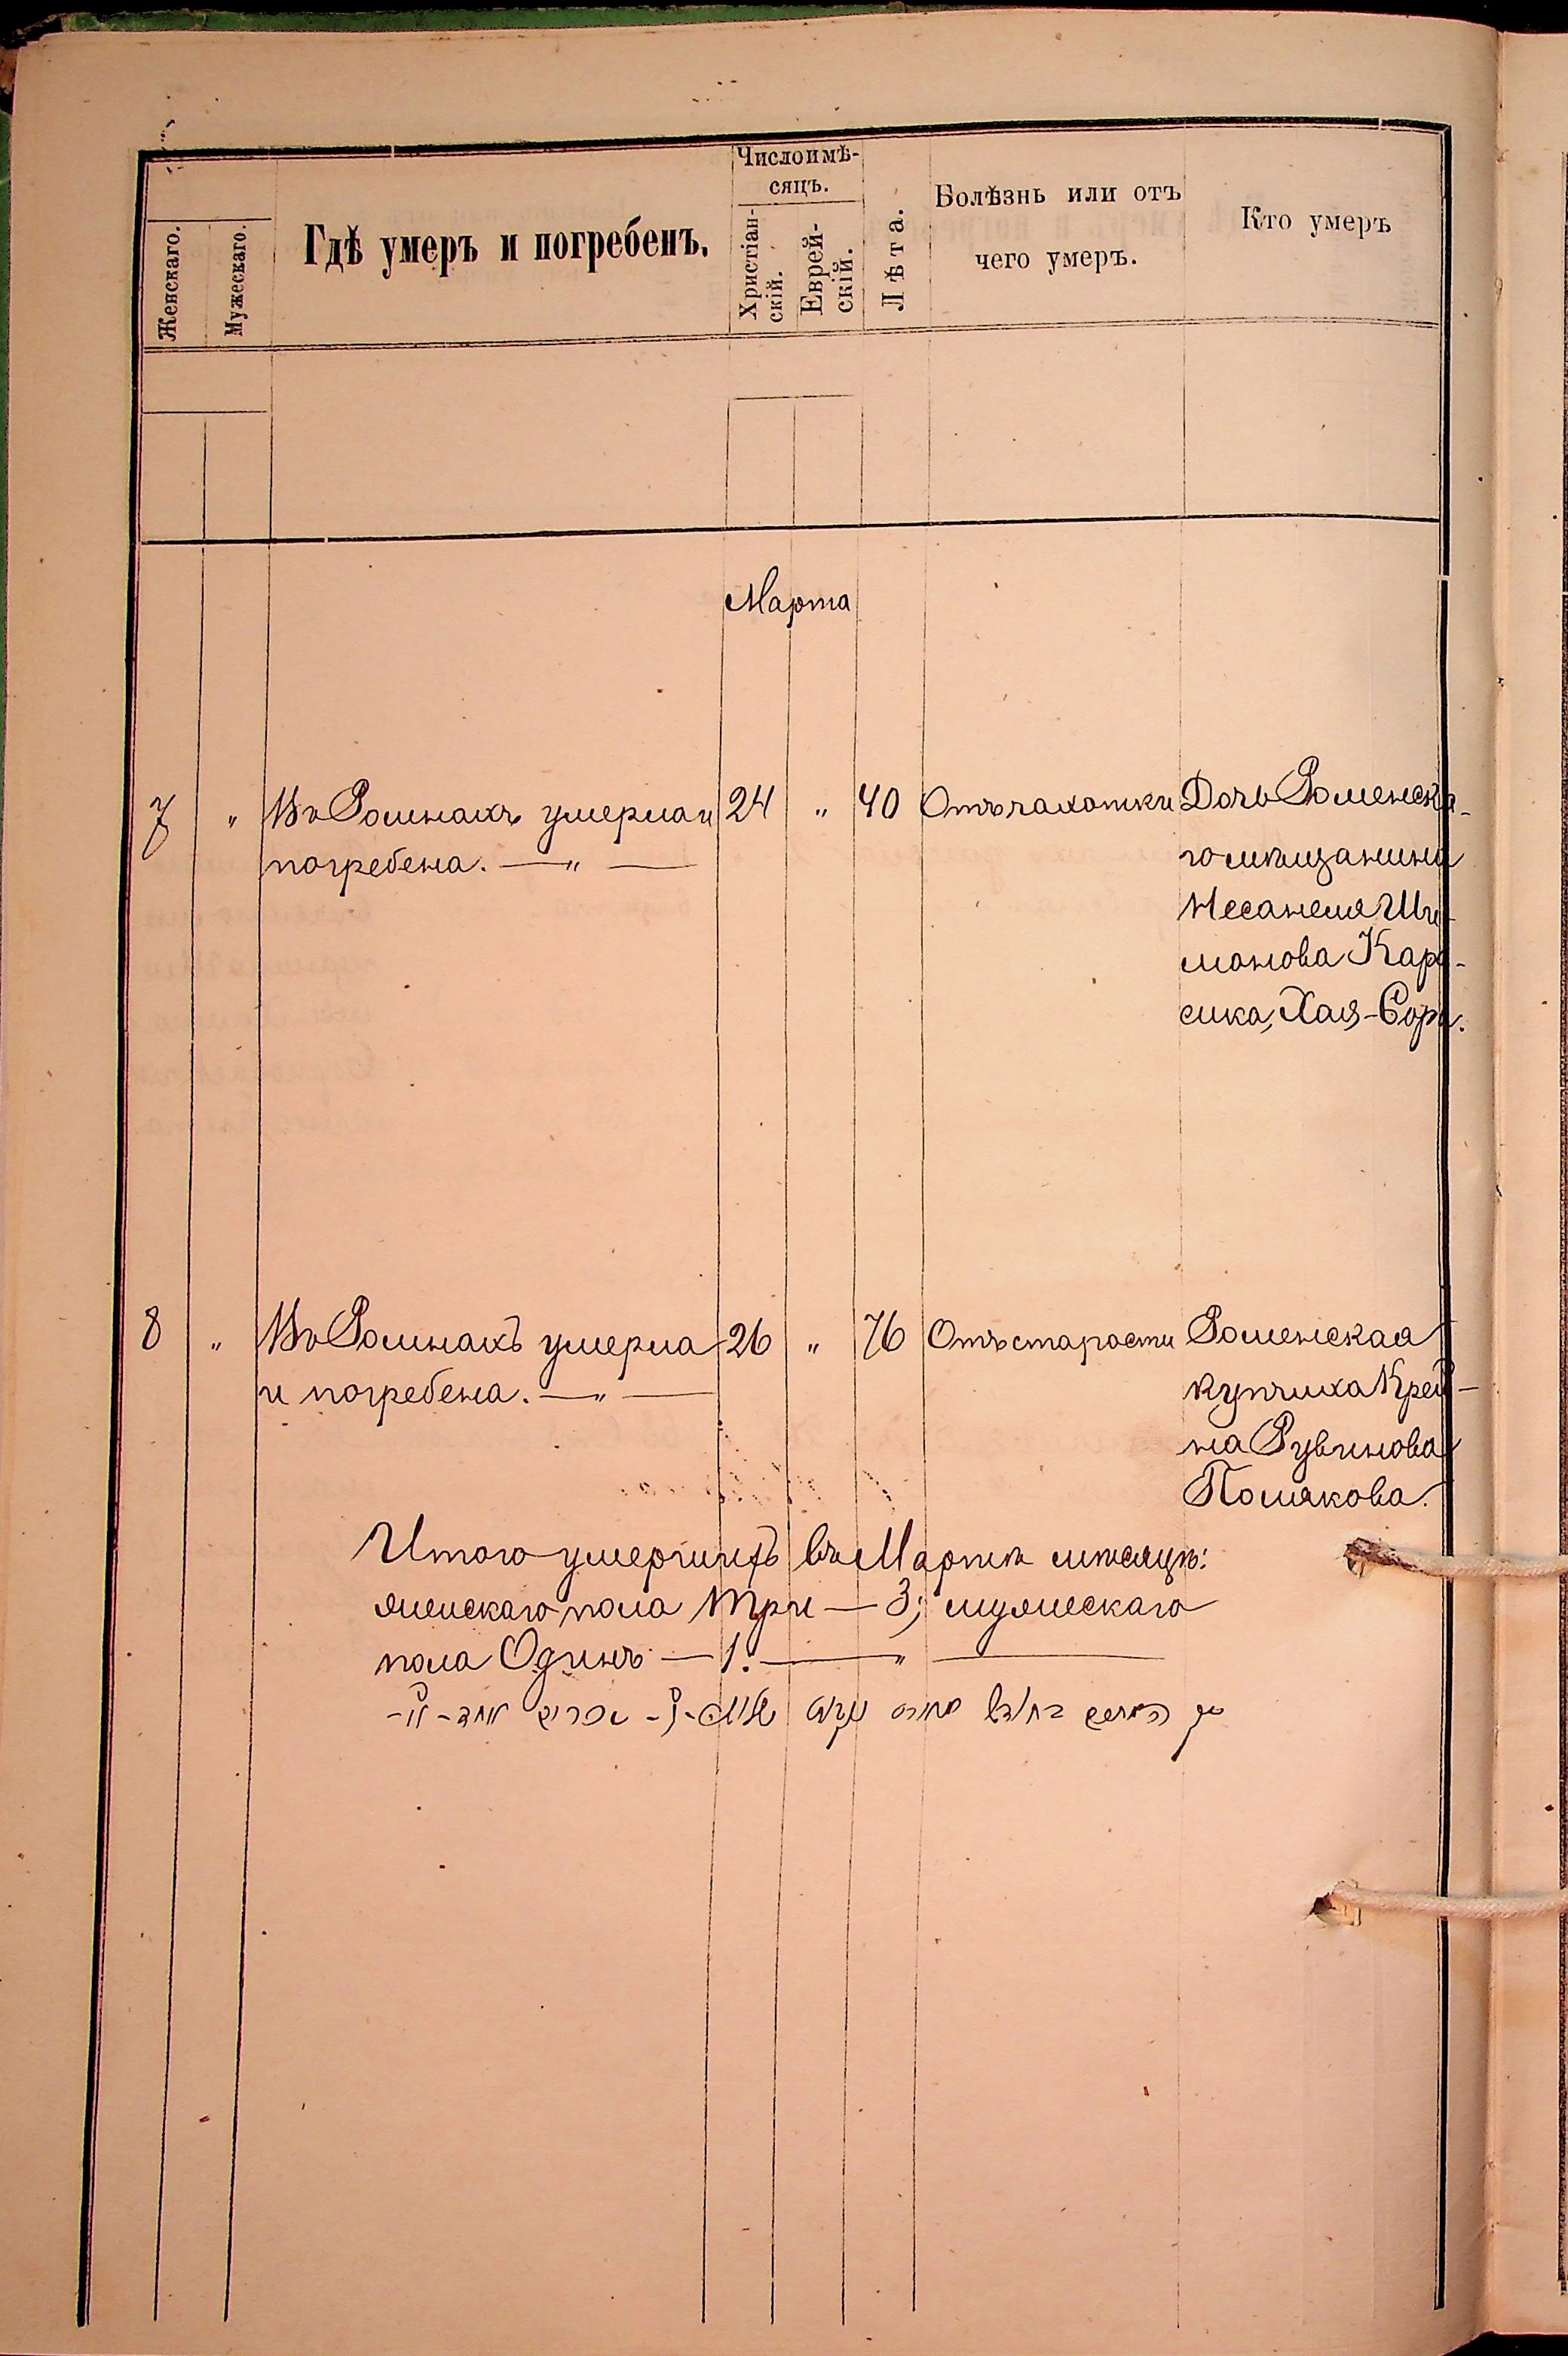 Числоимѣ-
сяцъ.
Женскаго.
Мужескаго.
Гдѣ умеръ и погребенъ.
Христіан-
скій.
Еврей-
скій.
Лѣта.
Болѣзнь или отъ
чего умеръ.
Кто умеръ
Марта
7 " Въ Ромнахъ умерла и 24 " 40 Отъ чахотки Дочь Роменска-
погребена. — " — го мѣщанина
Несанеля Ши-
монова Кара-
сика, Хая-Сора.
8 " Въ Ромнахъ умерла 26 " 76 Отъ старости Роменская
и погребена. — " — купчиха Крей-
на Рувинова
Полякова.
Итого умершихъ въ Мартѣ мѣсяцѣ:
женскаго пола три — 3; мужескаго
пола Одинъ — 1. — " —